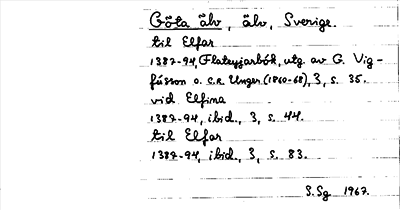 Göta älv, älv, Sverige.
til Elfar
1387-94, Flateyjarbók, utg. av G. Vig-
fússon o. C.R. Unger (1860-68), 3, s. 35.
vid Elfina
1387-94, ibid., 3, s. 44.
til Elfar
1387-94, ibid., 3, s. 83.
S.Sg 1967.